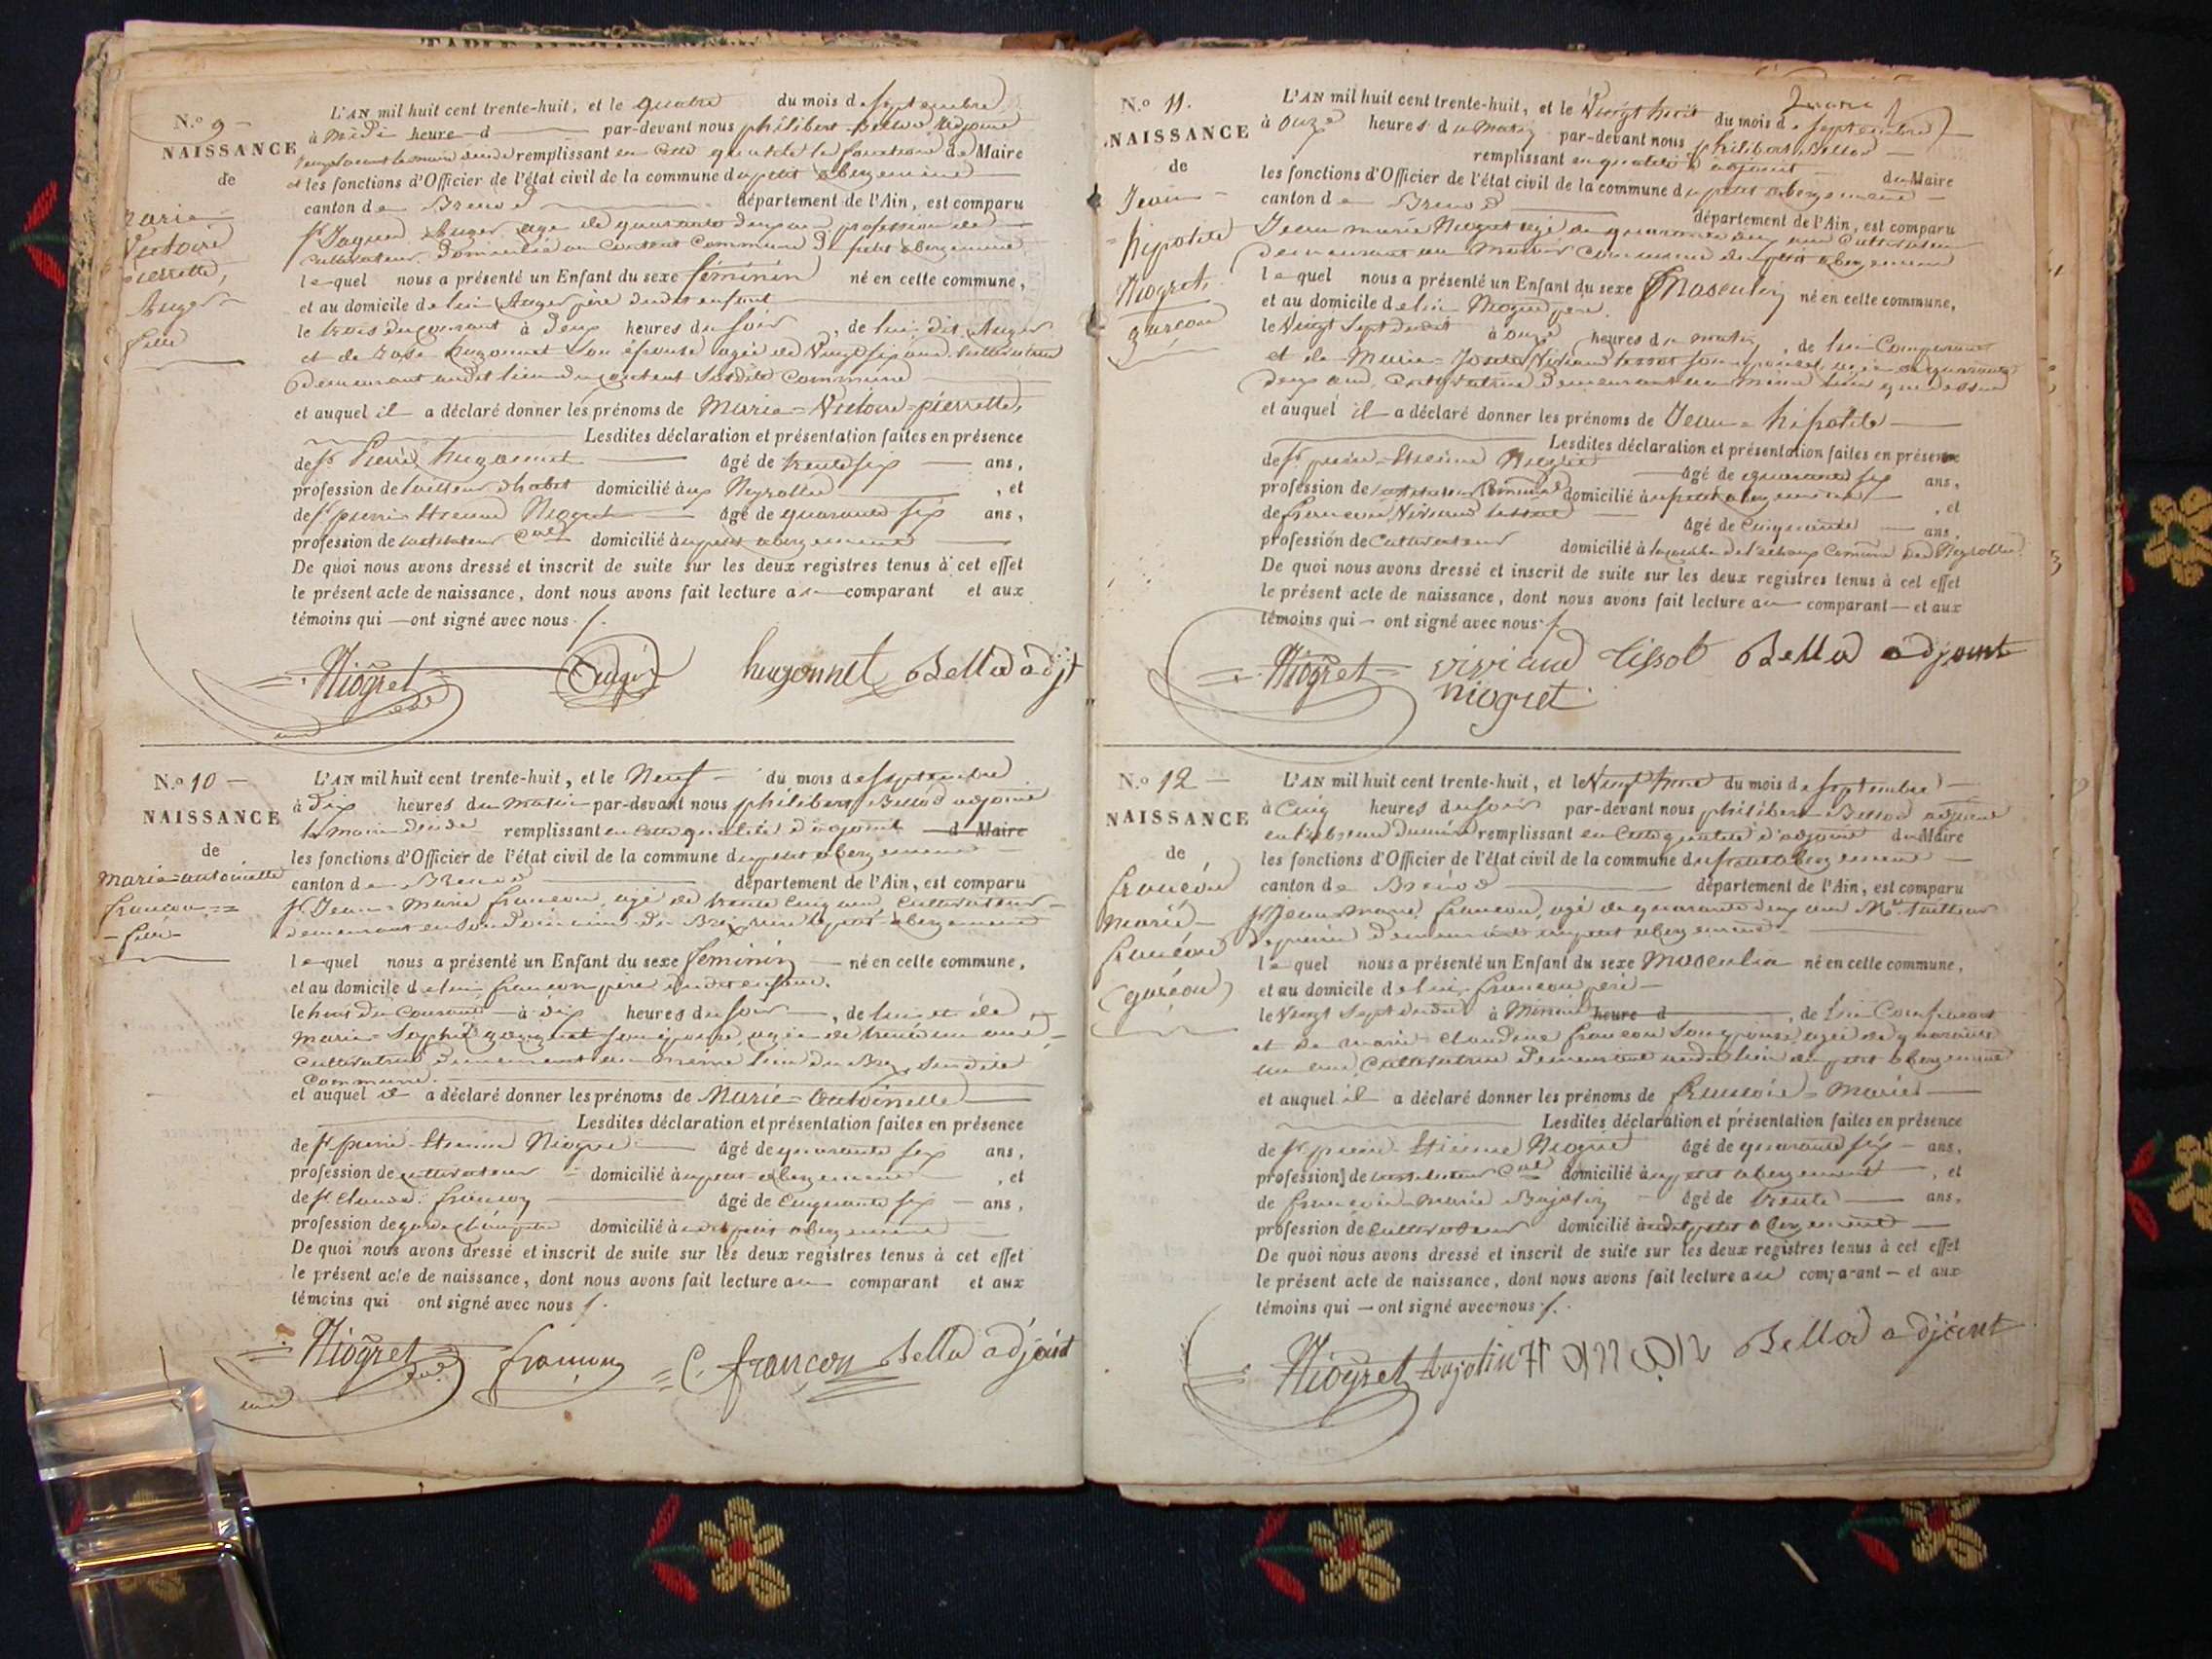 N.º 9
NAISSANCE
de
Marie
Victoire
pierrette,
Auger
fille
L'AN mil huit cent trente-huit, et le quatre du mois de septembre
à midi heure d par-devant nous philibert Bellod adjoint
remplissant en cette qualité les fonctions de Maire
et les fonctions d'Officier de l'état civil de la commune du petit abergement
canton de Brenod département de l'Ain, est comparu
sr Jaques Auger, age de quarante deux ans, profession de
cultivateur, domicilié au commune du petit abergement
lequel nous a présenté un Enfant du sexe féminin né en cette commune,
et au domicile de lui Auger père dudit enfant
le trois du courant à deux heures du soir, de lui dit Auger
et de Rose hugonnet son épouse agée de vingt six ans cultivatrice
demeurant audit lieu du susdite commune
et auquel il a déclaré donner les prénoms de Marie=Victoire=pierrette,
Lesdites déclaration et présentation faites en présence
de sr Pierre hugonnet âgé de trente six ans,
profession de tailleur d'habit domicilié aux Neyrolles, et
de sr pierre Etienne Niogret âgé de quarante six ans,
profession de instituteur cal domicilié au petit abergement
De quoi nous avons dressé et inscrit de suite sur les deux registres tenus à cet effet
le présent acte de naissance, dont nous avons fait lecture au comparant et aux
témoins qui ont signé avec nous.
Niogret Augé hugonnet Bellod adjt
N.º 10
NAISSANCE
de
Marie=antoinette
francon
fille
L'AN mil huit cent trente-huit, et le Neuf du mois de septembre
à dix heures du matin par-devant nous philibert Bellod adjoint
remplissant en cette qualité d'adjoint d Maire
les fonctions d'Officier de l'état civil de la commune du petit abergement
canton de Brenod département de l'Ain, est comparu
sr Jean=Marie francon, agé de trente cinq ans, cultivateur
demeurant en son domicile du petit abergement
lequel nous a présenté un Enfant du sexe féminin né en cette commune,
et au domicile de lui francon père dudit enfant.
le huit du courant à dix heures du soir, de lui et de
Marie=Sophie son épouse, agée de trente un ans,
cultivatrice demeurant au même lieu susdite
commune.
et auquel il a déclaré donner les prénoms de Marie=Antoinette
Lesdites déclaration et présentation faites en présence
de sr pierre Etienne Niogret âgé de quarante six ans,
profession de cultivateur domicilié au petit abergement, et
de sr Claude francon âgé de cinquante six ans,
profession de garde champêtre domicilié audit petit abergement
De quoi nous avons dressé et inscrit de suite sur les deux registres tenus à cet effet
le présent acte de naissance, dont nous avons fait lecture au comparant et aux
témoins qui ont signé avec nous.
Niogret francon C. francon Bellod adjoint
N.º 11.
NAISSANCE
de
Jean
=hipolite
Niogret,
garçon
L'AN mil huit cent trente-huit, et le Vingt huit du mois de septembre
à onze heures du matin par-devant nous philibert Bellod
remplissant en qualité d'adjoint du Maire
les fonctions d'Officier de l'état civil de la commune du petit abergement
canton de Brenod département de l'Ain, est comparu
Jean marie Niogret agé de quarante ans cultivateur
demeurant au commune du petit abergement
lequel nous a présenté un Enfant du sexe Masculin né en cette commune,
et au domicile de lui Niogret père.
le Vingt Sept dudit à onze heures du matin, de lui Comparant
et de Marie=Josette Viviand tissot son épouse, agée de quarante
deux ans, cultivatrice demeurant au même lieu que dessus
et auquel il a déclaré donner les prénoms de Jean=hipolite
Lesdites déclaration et présentation faites en présence
de sr pierre=Etienne Niogret âgé de quarante six ans,
profession de instituteur communal domicilié au petit abergement, et
de françois Viviand tissot âgé de cinquante ans,
profession de cultivateur domicilié à commune des Neyrolles
De quoi nous avons dressé et inscrit de suite sur les deux registres tenus à cet effet
le présent acte de naissance, dont nous avons fait lecture au comparant et aux
témoins qui ont signé avec nous.
Niogret viviand tissot Bellod adjoint
niogret
N.º 12
NAISSANCE
de
françois
marie
francon
garçon
L'AN mil huit cent trente-huit, et le du mois de septembre
à Cinq heures du soir par-devant nous philibert Bellod adjoint
en l'absence du maire remplissant en cette qualité d'adjoint du Maire
les fonctions d'Officier de l'état civil de la commune du petit abergement
canton de Brenod département de l'Ain, est comparu
sr Jean Marie francon, agé de quarante deux ans Me tailleur
de pierre demeurant au petit abergement
lequel nous a présenté un Enfant du sexe Masculin né en cette commune,
et au domicile de lui francon père
le Vingt Sept dudit à Minuit heure d, de lui Comparant
et de marie Claudine francon son épouse, agée de quarante
un ans, cultivatrice demeurant audit lieu du petit abergement
et auquel il a déclaré donner les prénoms de françois=Marie
Lesdites déclaration et présentation faites en présence
de sr pierre Etienne Niogret âgé de quarante six ans,
profession de instituteur cal domicilié au petit abergement, et
de françois marie Bajolin âgé de trente ans,
profession de cultivateur domicilié audit petit abergement
De quoi nous avons dressé et inscrit de suite sur les deux registres tenus à cet effet
le présent acte de naissance, dont nous avons fait lecture au comparant et aux
témoins qui ont signé avec nous.
Niogret bajolin Bellod adjoint